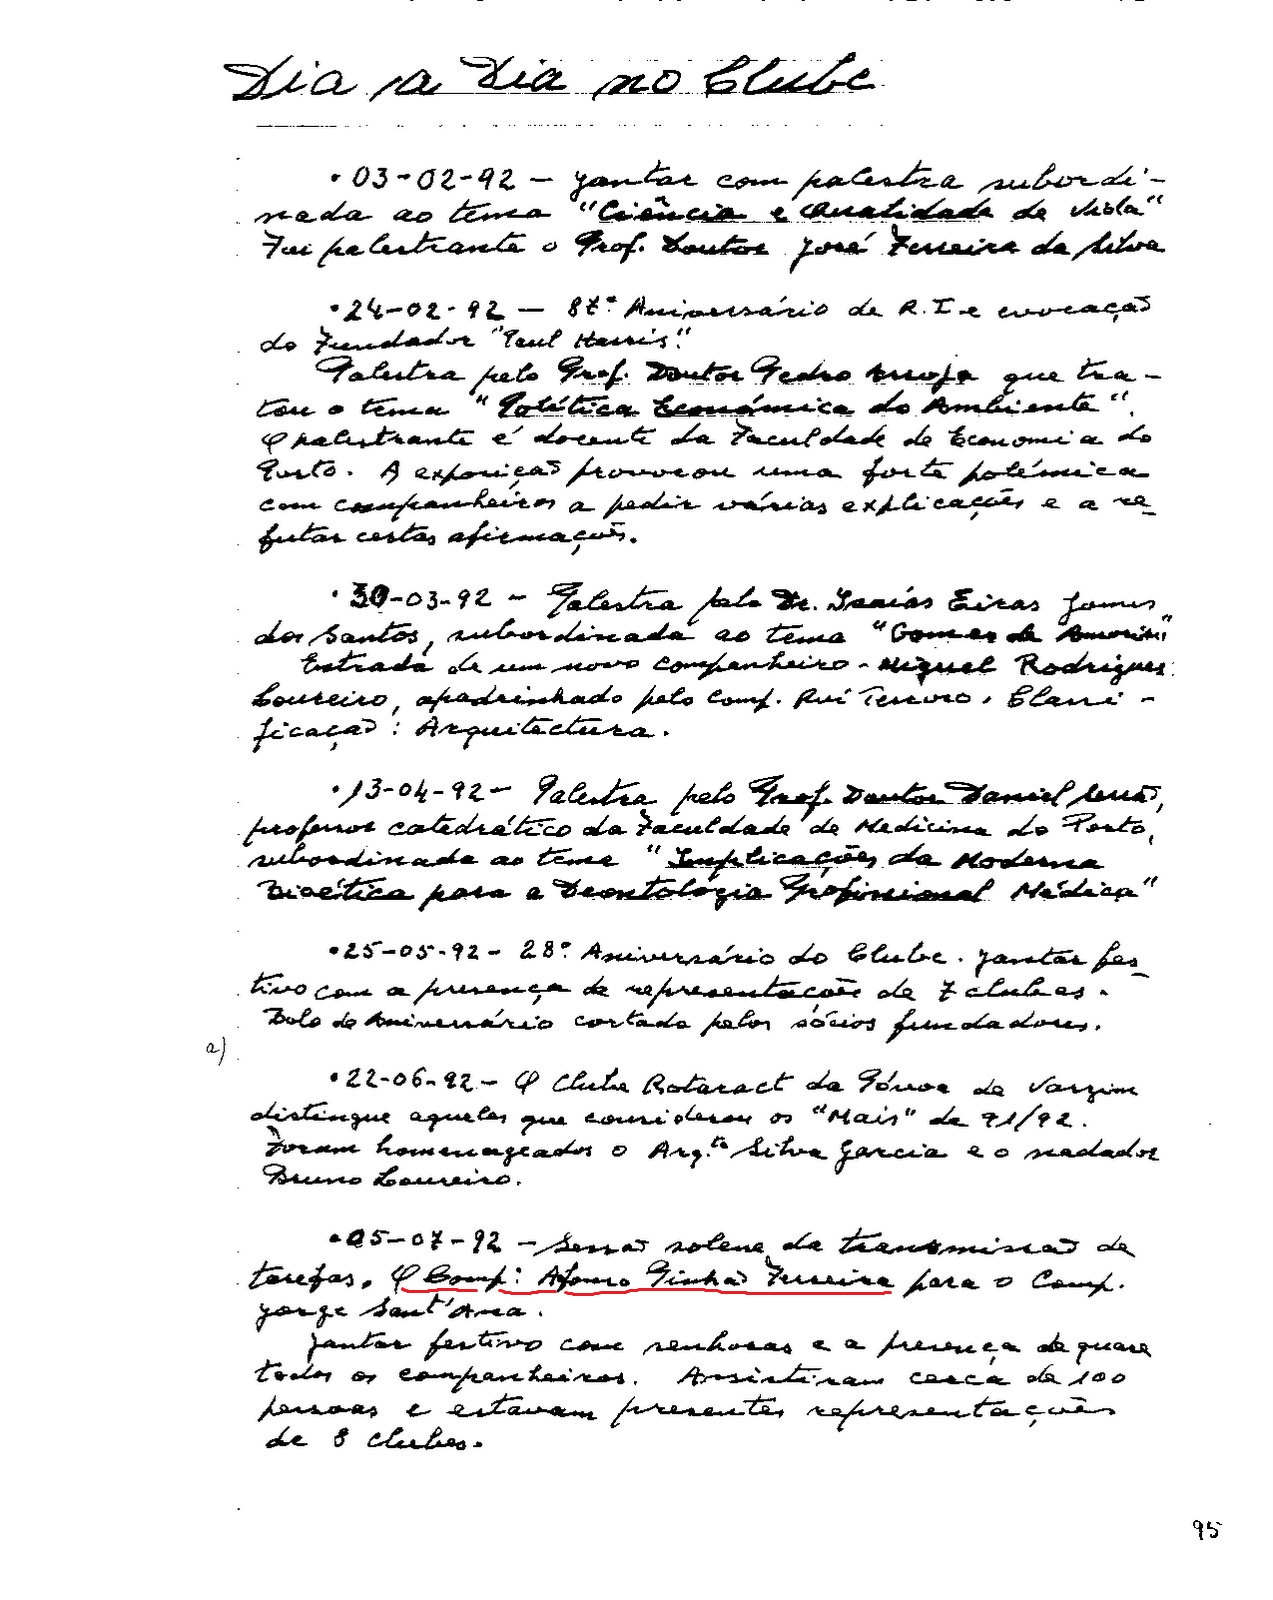 Dia a Dia no Clube
• 03-02-92 – Jantar com palestra subordi-
nada ao tema "Ciência e Qualidade de Vida"
Foi palestrante o Prof. Doutor José Ferreira da Silva
• 24-02-92 – 87º Aniversário de R.I e evocação
do Fundador "Paul Harris".
Palestra pelo Prof. Doutor Pedro Arroja que tra-
tou o tema "Política Económica do Ambiente".
O palestrante é docente da Faculdade de Economia do
Porto. A exposição provocou uma forte polémica
com companheiros a pedir várias explicações e a re-
futar certas afirmações.
• 30-03-92 – Palestra pelo Dr. Isaías Eiras Gomes
dos Santos, subordinada ao tema "Gomes de Amorim"
Entrada de um novo companheiro - Miguel Rodrigues
Loureiro, apadrinhado pelo Comp. Rui Terroso. Classi-
ficação: Arquitectura.
• 13-04-92 – Palestra pelo Prof. Doutor Daniel Serrão,
professor catedrático da Faculdade de Medicina do Porto,
subordinada ao tema "Implicações da Moderna
Bioética para a Deontologia Profissional Médica"
• 25-05-92 – 28º Aniversário do Clube. Jantar fes-
tivo com a presença de representações de 7 clubes.
Bolo de Aniversário cortado pelos sócios fundadores.
a)
• 22-06-92 – O Clube Rotaract da Póvoa de Varzim
distingue aqueles que considerou os "Mais" de 91/92.
Foram homenageados o Arq.to Silva Garcia e o nadador
Bruno Loureiro.
• 05-07-92 – Sessão solene da transmissão de
tarefas. O Comp: Afonso Pinhão Ferreira para o Comp.
Jorge Sant'Ana.
Jantar festivo com senhoras e a presença de quase
todos os companheiros. Assistiram cerca de 100
pessoas e estavam presentes representações
de 8 clubes.
95